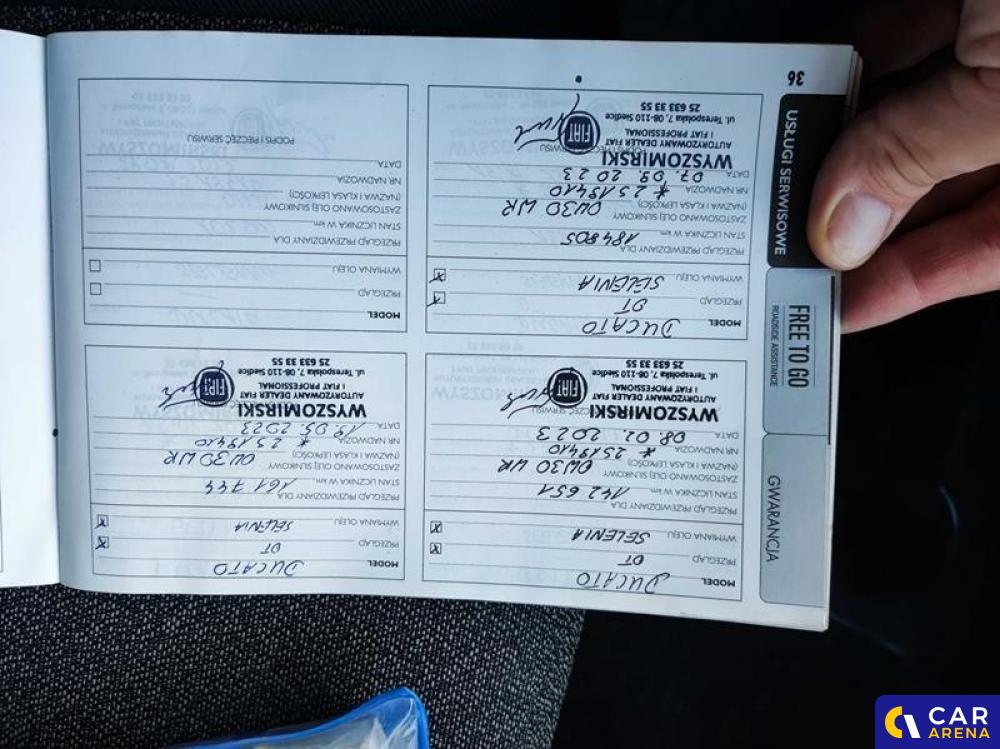 MODEL DUCATO
PRZEGLĄD DT
WYMIANA OLEJU SELENIA
PRZEGLĄD PRZEWIDZIANY DLA
STAN LICZNIKA W km 142 651
ZASTOSOWANO OLEJ SILNIKOWY
(NAZWA I KLASA LEPKOŚCI) 0W30 WR
NR NADWOZIA * 2S19410
DATA 08. 02. 2023
WYSZOMIRSKI
AUTORYZOWANY DEALER FIAT
I FIAT PROFESSIONAL
ul. Terespolska 7, 08-110 Siedlce
25 633 33 55
FIAT
MODEL DUCATO
PRZEGLĄD DT
WYMIANA OLEJU SELENIA
PRZEGLĄD PRZEWIDZIANY DLA
STAN LICZNIKA W km 161 744
ZASTOSOWANO OLEJ SILNIKOWY
(NAZWA I KLASA LEPKOŚCI) 0W30 WR
NR NADWOZIA * 2S19410
DATA 19. 05. 2023
WYSZOMIRSKI
AUTORYZOWANY DEALER FIAT
I FIAT PROFESSIONAL
ul. Terespolska 7, 08-110 Siedlce
25 633 33 55
FIAT
MODEL DUCATO
PRZEGLĄD DT
WYMIANA OLEJU SELENIA
PRZEGLĄD PRZEWIDZIANY DLA
STAN LICZNIKA W km 184805
ZASTOSOWANO OLEJ SILNIKOWY
(NAZWA I KLASA LEPKOŚCI) 0W30 WR
NR NADWOZIA * 2S19410
DATA 07. 09. 2023
WYSZOMIRSKI
AUTORYZOWANY DEALER FIAT
I FIAT PROFESSIONAL
ul. Terespolska 7, 08-110 Siedlce
25 633 33 55
FIAT
MODEL
PRZEGLĄD
WYMIANA OLEJU
PRZEGLĄD PRZEWIDZIANY DLA
STAN LICZNIKA W km
ZASTOSOWANO OLEJ SILNIKOWY
(NAZWA I KLASA LEPKOŚCI)
NR NADWOZIA
DATA
PODPIS I PIECZĘĆ SERWISU
36
USŁUGI SERWISOWE
FREE TO GO
ROADSIDE ASSISTANCE
GWARANCJA
CAR
ARENA